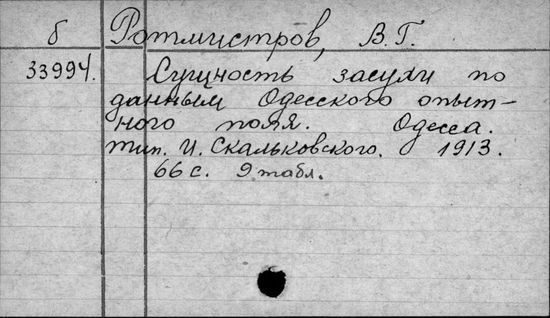 б Ротмистров, В.Г.
33994. Сущность засухи по
данным Одесского опыт-
ного поля. Одесса.
тип. И. Скальковского. 1913.
66 с. 9 табл.